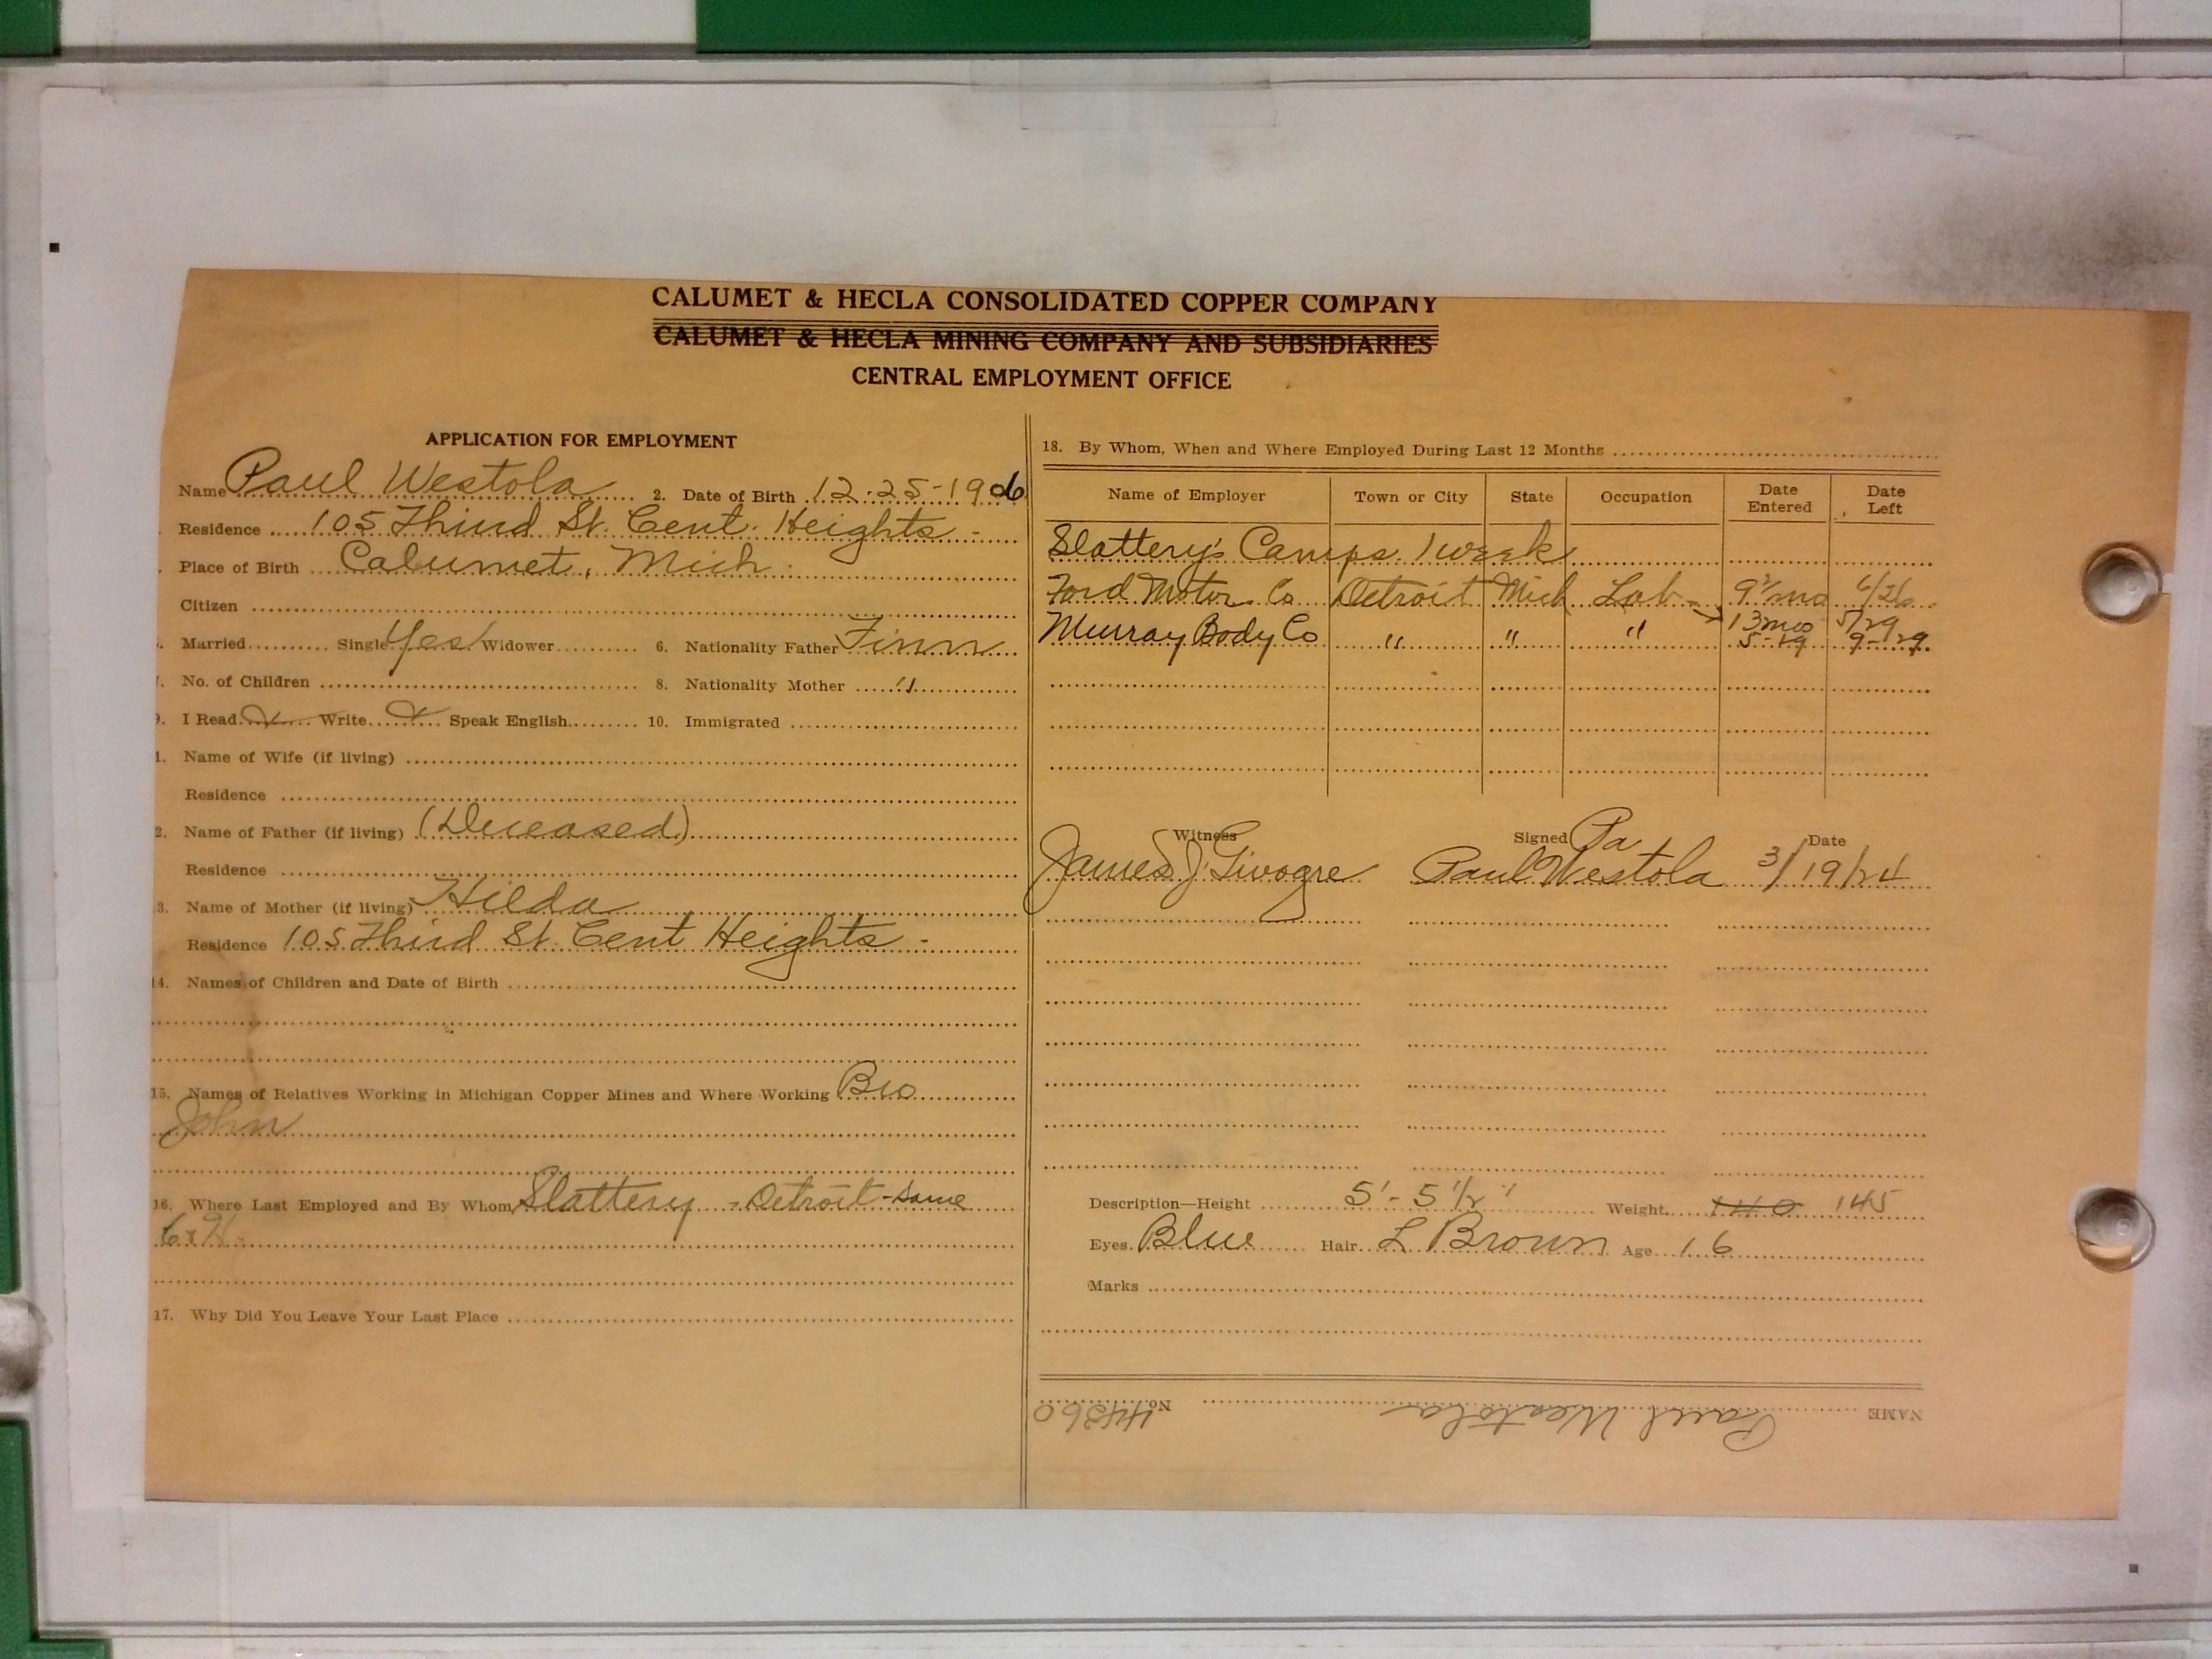 CALUMET & HECLA CONSOLIDATED COPPER COMPANY
CALUMET & HECLA MINING COMPANY AND SUBSIDIARIES
CENTRAL EMPLOYMENT OFFICE
APPLICATION FOR EMPLOYMENT
Name Paul Westola 2. Date of Birth 12-25-1906
Residence 105 Third St. Cent. Heights -
Place of Birth Calumet, Mich.
Citizen
Married Single Yes Widower 6. Nationality Father Finn
No. of Children 8. Nationality Mother "
9. I Read x Write x Speak English 10. Immigrated
1. Name of Wife (if living)
Residence
2. Name of Father (if living) (Deceased)
Residence
3. Name of Mother (if living) Hilda
Residence 105 Third St. Cent Heights -
14. Names of Children and Date of Birth
15. Names of Relatives Working in Michigan Copper Mines and Where Working Bro
John
16. Where Last Employed and By Whom Slattery - Detroit - same
17. Why Did You Leave Your Last Place
18. By Whom, When and Where Employed During Last 12 Months
Name of Employer Town or City State Occupation Date Entered Date Left
Slattery's Camps. 1 week
Ford Motor Co Detroit Mich Lab 9 1/2 mo 6/26
13 mo 5/29
Murray Body Co " " " 5-29 9-29
Witness Signed Pa Date
James J. Paul Westola 3/19/24
Description—Height 5'-5 1/2" Weight 140 145
Eyes Blue Hair L Brown Age 16
Marks
NAME Paul Westola No. 44360